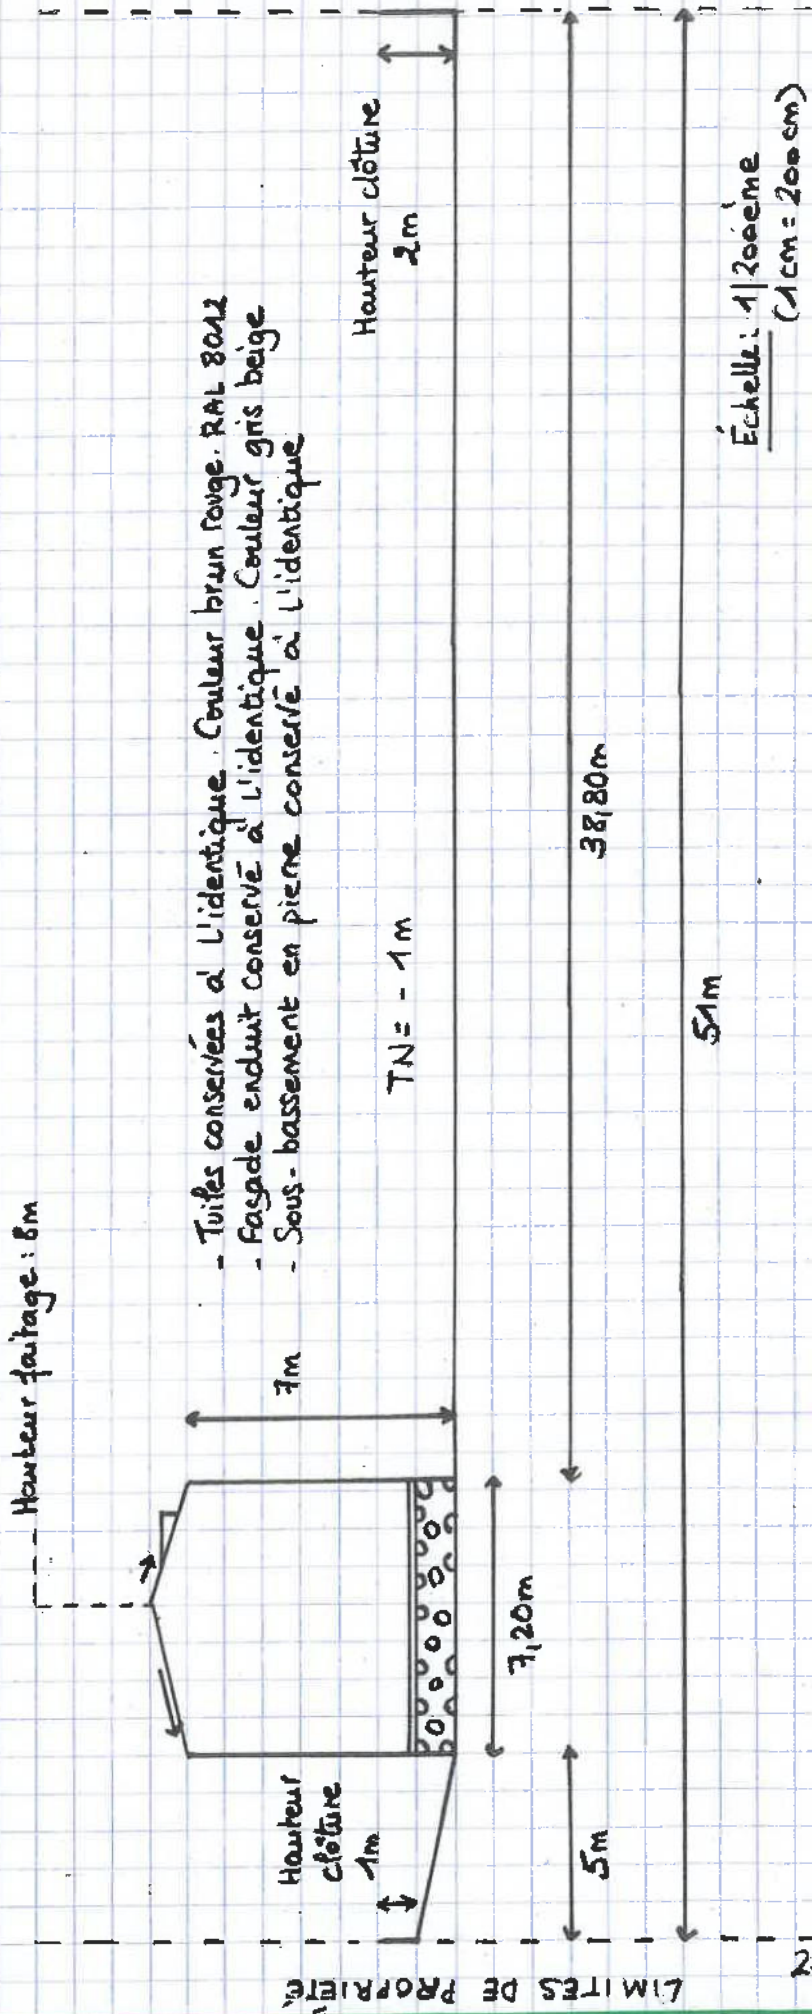 Hauteur faitage : 8m
- Tuiles conservées à l'identique. Couleur brun rouge. RAL 8012
- Façade enduit conservé à l'identique. Couleur gris beige
- Sous-bassement en pierre conservé à l'identique
7m
Hauteur clôture
2m
Hauteur
clôture
1m
TN = - 1m
7,20m
5m
38,80m
51m
Échelle : 1/200ème
(1 cm = 200 cm)
LIMITES DE PROPRIETE
2